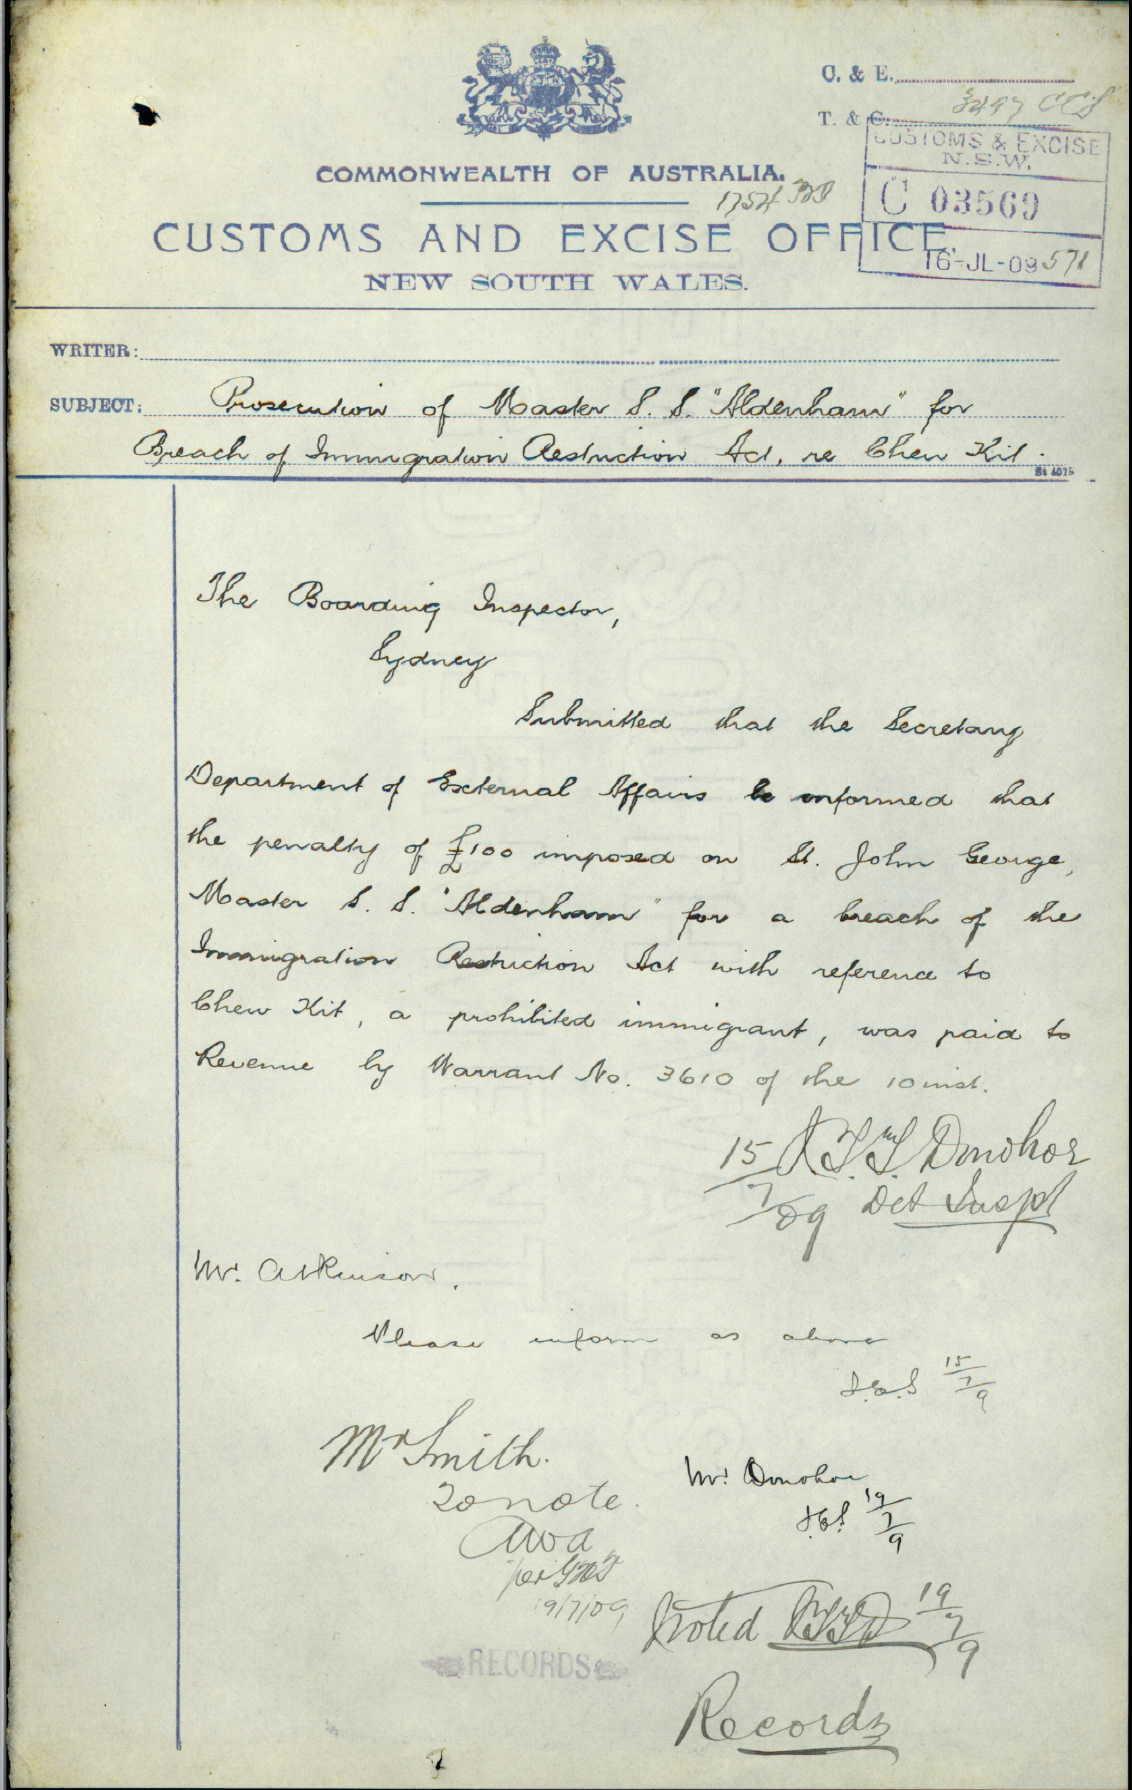 C. & E.
T. & C. 3497 CCS
CUSTOMS & EXCISE
N.S.W.
C 03569
16-JL-09 571
COMMONWEALTH OF AUSTRALIA.
1754
CUSTOMS AND EXCISE OFFICE,
NEW SOUTH WALES.
WRITER:
SUBJECT: Prosecution of Master S. S. "Aldenham" for
Breach of Immigration Restriction Act, re Chew Kit.
St 4075
The Boarding Inspector,
Sydney
Submitted that the Secretary
Department of External Affairs be informed that
the penalty of £100 imposed on St. John George,
Master S. S. "Aldenham" for a breach of the
Immigration Restriction Act with reference to
Chew Kit, a prohibited immigrant, was paid to
Revenue by Warrant No. 3610 of the 10 inst.
15/7/09 Donohoe
Det Inspt
Mr. Atkinson.
Please inform as above
15/7/9
Mr Smith.
To note.
AWA
19/7/09
Mr. Donohoe
19/7/9
Noted 19/7/9
RECORDS
Records